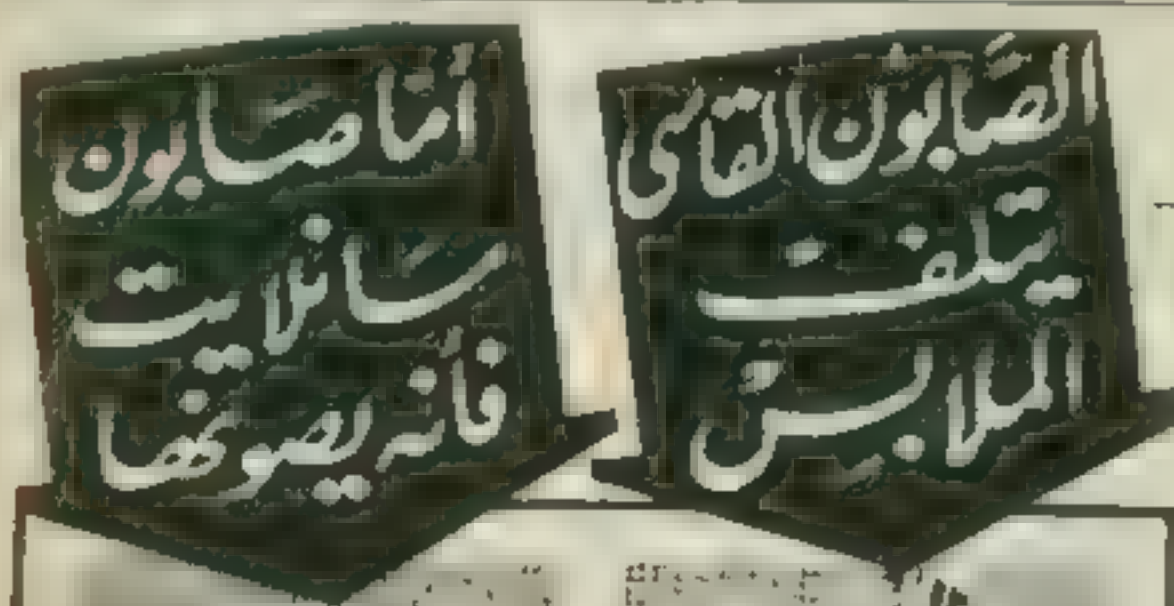 الصَّابون القاسى
يتلف
الملابس
أمّا صَابون
سَانلايت
فانه يصونها